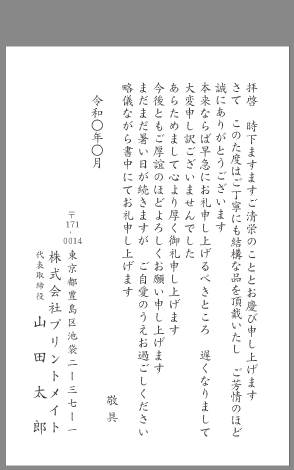 拝啓　時下ますますご清栄のこととお慶び申し上げます
さて　このた度はご丁寧にも結構な品を頂戴いたし　ご芳情のほど
誠にありがとうございます
本来ならば早急にお礼申し上げるべきところ　遅くなりまして
大変申し訳ございませんでした
あらためまして心より厚く御礼申し上げます
今後ともご厚誼のほどよろしくお願い申し上げます
まだまだ暑い日が続きますが　ご自愛のうえお過ごしください
略儀ながら書中にてお礼申し上げます
敬具
令和〇年〇月
〒171-0014
東京都豊島区池袋二ー三七ー一
株式会社プリントメイト
代表取締役　山田太郎